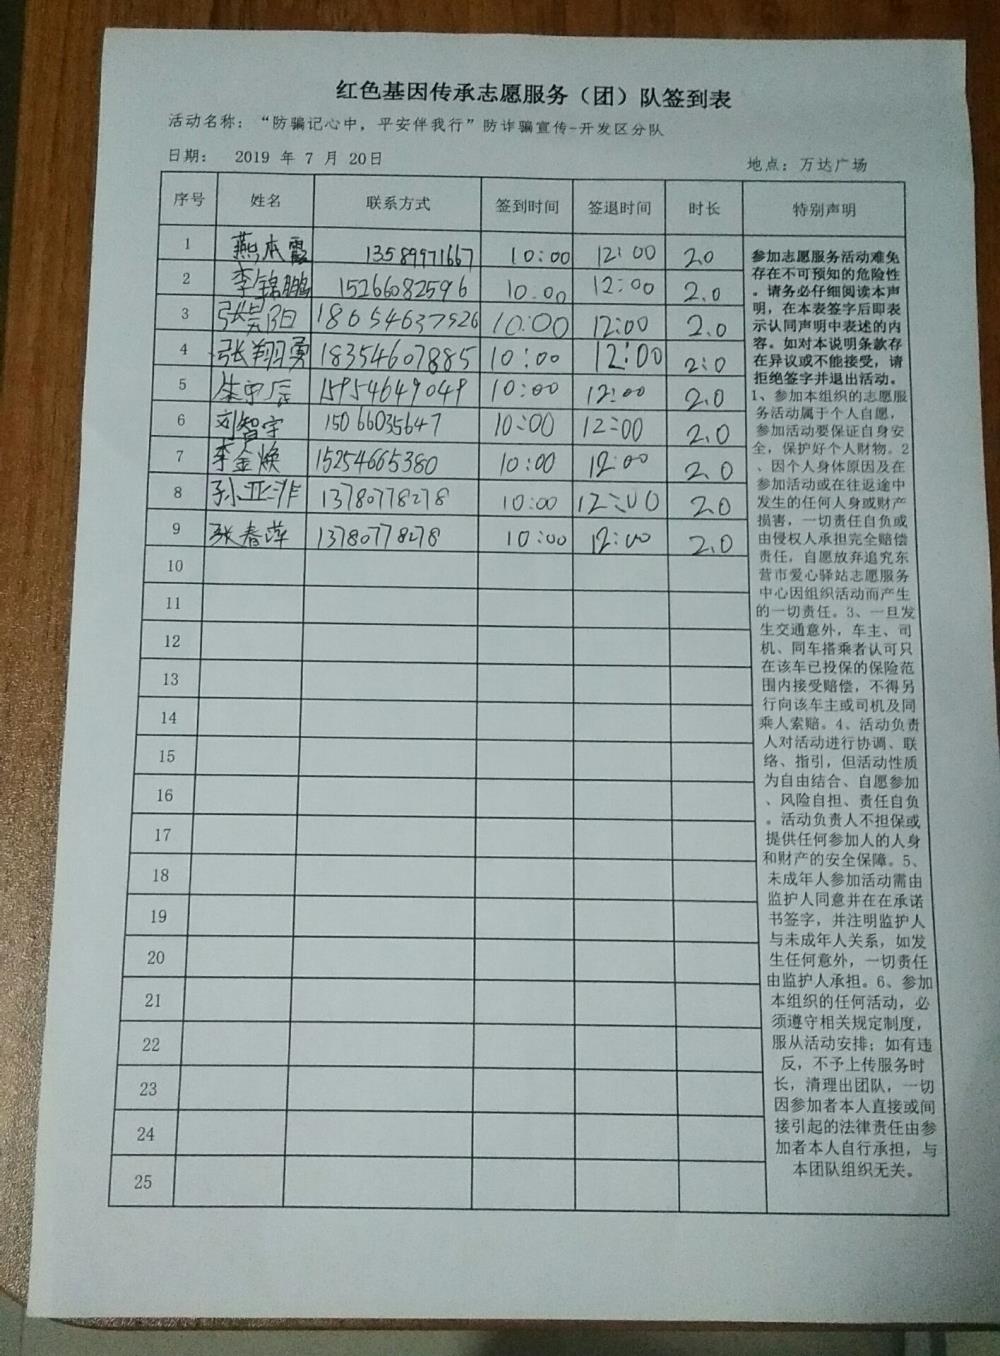 红色基因传承志愿服务（团）队签到表
活动名称：“防骗记心中，平安伴我行”防诈骗宣传-开发区分队
日期： 2019 年 7 月 20日 地点：万达广场
序号 姓名 联系方式 签到时间 签退时间 时长 特别声明
1 燕本霞 13589971667 10:00 12:00 2.0
2 李锦鹏 15266082596 10:00 12:00 2.0
3 18654637926 10:00 12:00 2.0
4 张翔勇 18354607885 10:00 12:00 2:0
5 15954649049 10:00 12:00 2.0
6 刘智宇 15066035647 10:00 12:00 2.0
7 李金焕 15254665380 10:00 12:00 2.0
8 13780778278 10:00 12:00 2.0
9 张春萍 13780778278 10:00 12:00 2.0
10
11
12
13
14
15
16
17
18
19
20
21
22
23
24
25
参加志愿服务活动难免
存在不可预知的危险性
。请务必仔细阅读本声
明，在本表签字后即表
示认同声明中表述的内
容。如对本说明条款存
在异议或不能接受，请
拒绝签字并退出活动。
1、参加本组织的志愿服
务活动属于个人自愿，
参加活动要保证自身安
全，保护好个人财物。2
、因个人身体原因及在
参加活动或在往返途中
发生的任何人身或财产
损害，一切责任自负或
由侵权人承担完全赔偿
责任，自愿放弃追究东
营市爱心驿站志愿服务
中心因组织活动而产生
的一切责任。3、一旦发
生交通意外，车主、司
机、同车搭乘者认可只
在该车已投保的保险范
围内接受赔偿，不得另
行向该车主或司机及同
乘人索赔。4、活动负责
人对活动进行协调、联
络、指引，但活动性质
为自由结合、自愿参加
、风险自担、责任自负
。活动负责人不担保或
提供任何参加人的人身
和财产的安全保障。5、
未成年人参加活动需由
监护人同意并在在承诺
书签字，并注明监护人
与未成年人关系，如发
生任何意外，一切责任
由监护人承担。6、参加
本组织的任何活动，必
须遵守相关规定制度，
服从活动安排；如有违
反，不予上传服务时
长，清理出团队，一切
因参加者本人直接或间
接引起的法律责任由参
加者本人自行承担，与
本团队组织无关。